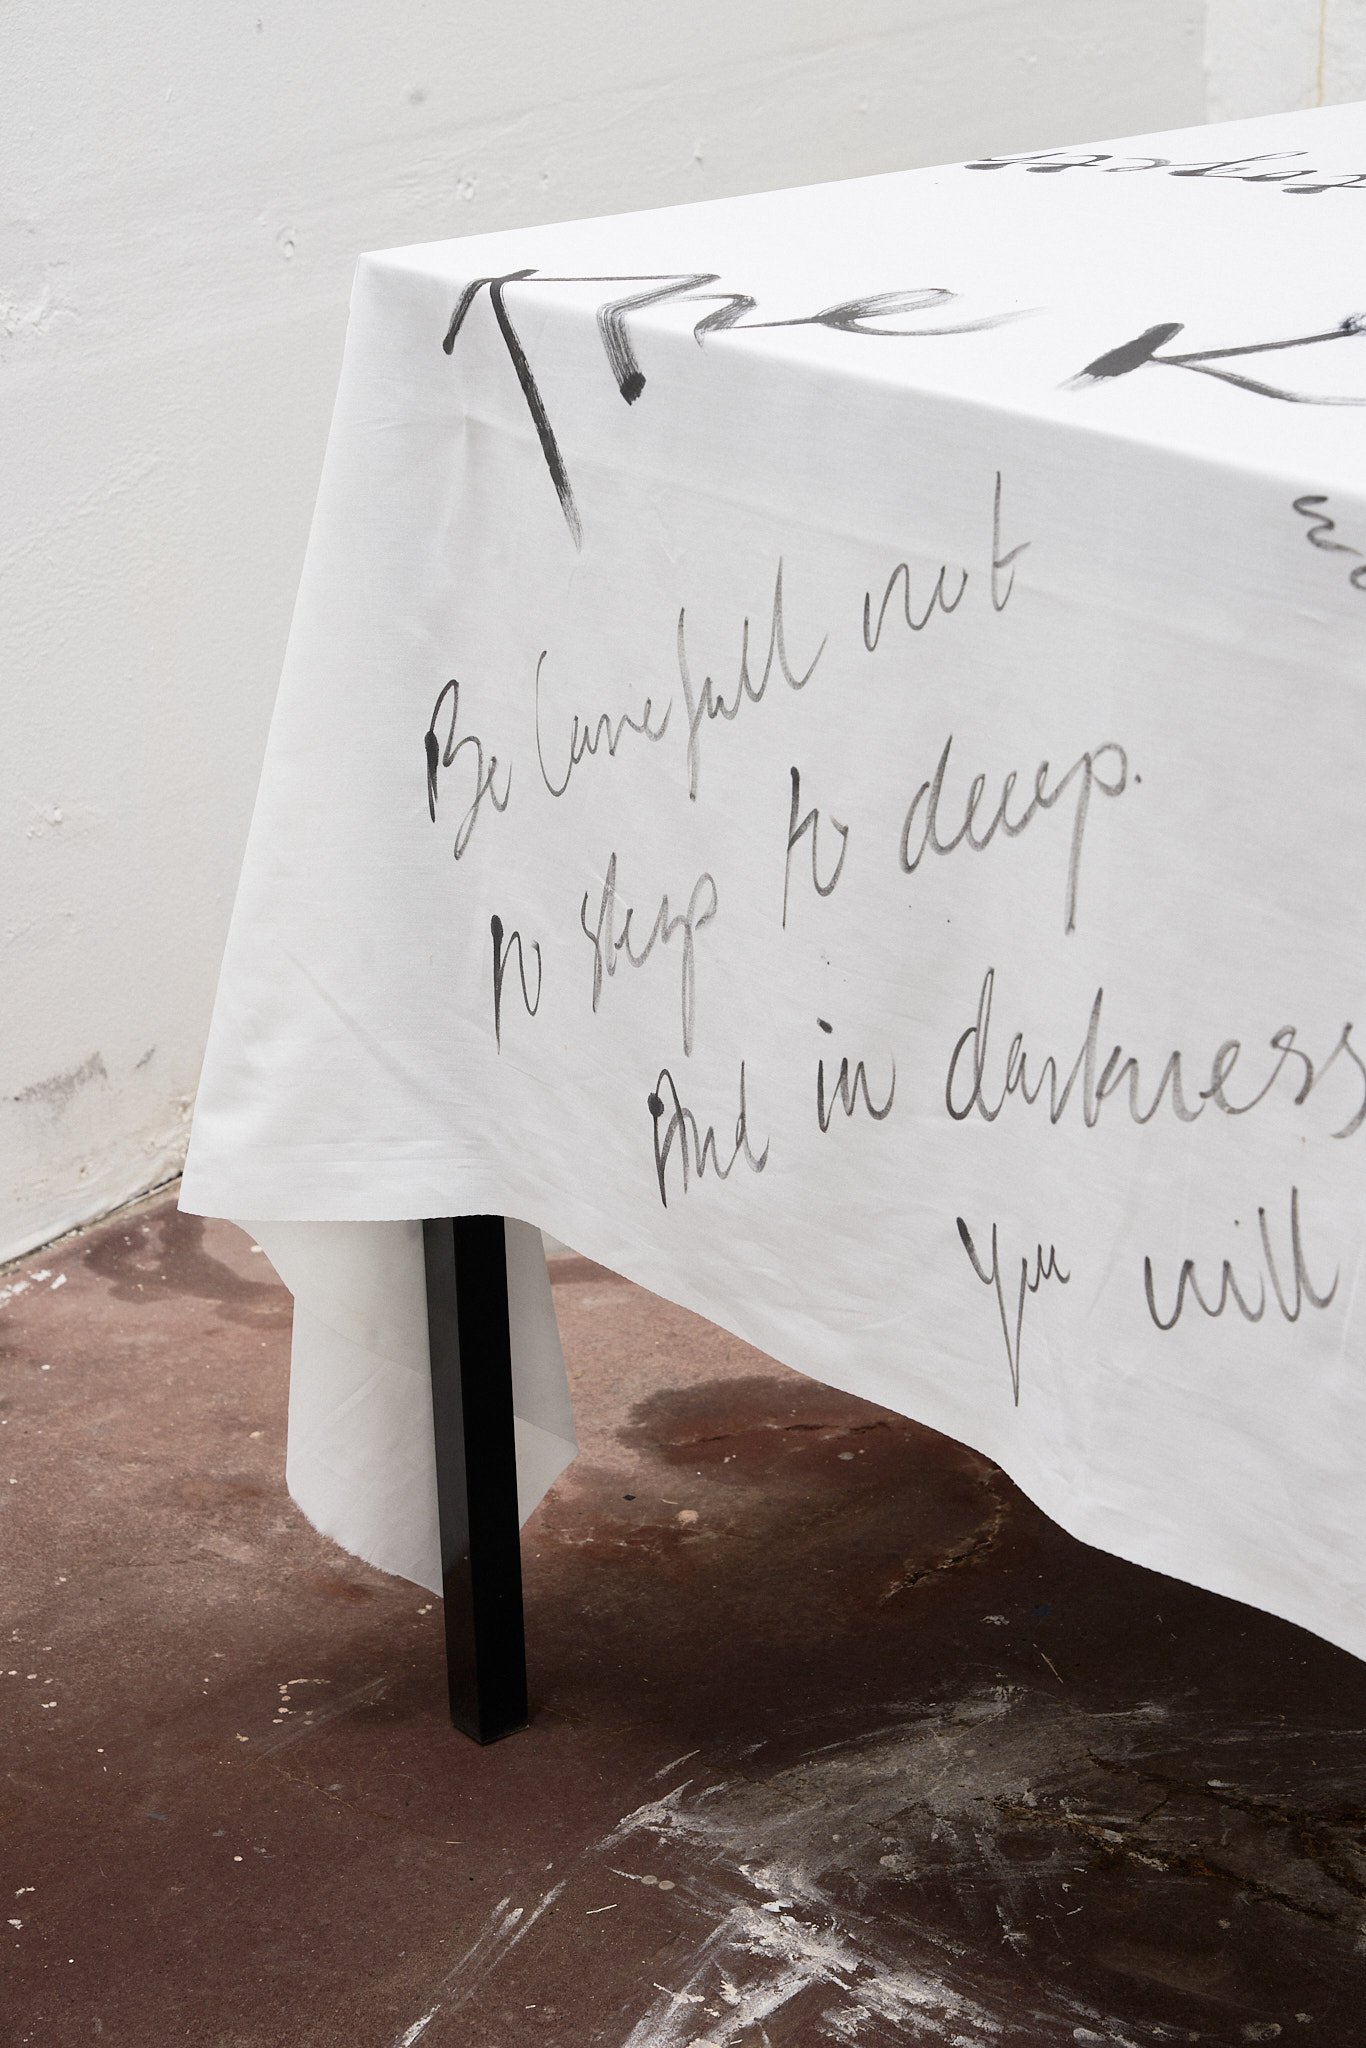 The
Be Carefull not
to step to deep.
And in darkness
You will